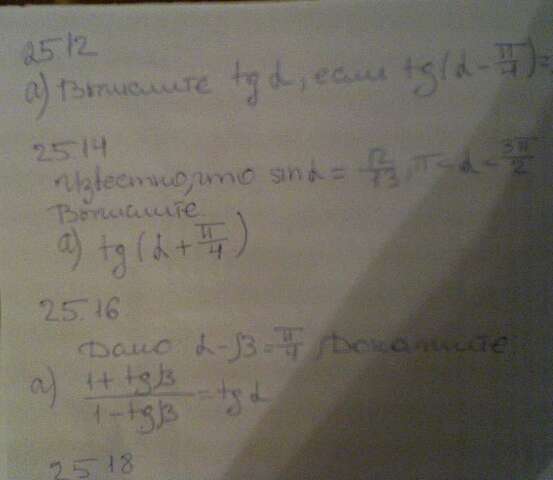 25.12
а) Вычислите tg α, если tg(α - π/4) =
25.14
Известно, что sin α = 12/13, π < α < 3π/2
Вычислите
а) tg(α + π/4)
25.16
Дано α - β = π/4 Докажите
а) (1 + tg β)/(1 - tg β) = tg α
25.18